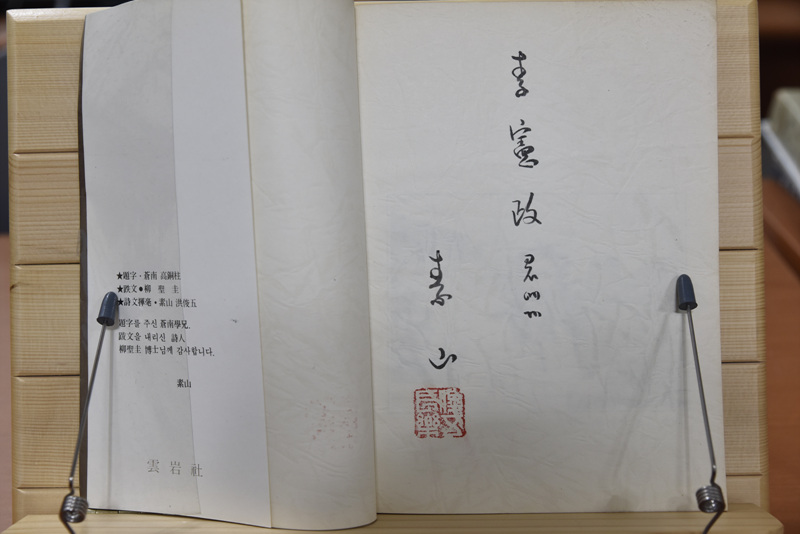 ★題字・蒼南 高銅柱
★跌文●柳 聖 圭
★詩文揮毫・素山 洪俊五
題字를 주신 蒼南學兄.
跋文을 내리신 詩人
柳聖圭 博士님께 감사합니다.
素山
雲岩社
李憲政 君
素山